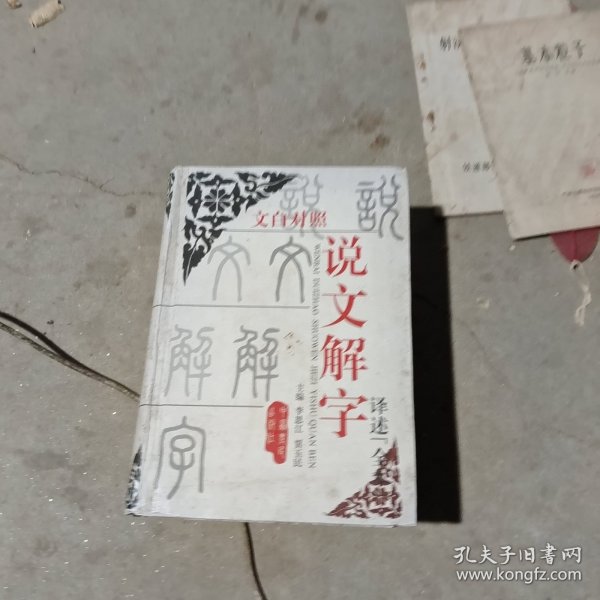 文白对照
说文解字
WENBAI DUIZHAO SHUOWEN JIEZI YISHU QUAN BEN
译述「全本」
主编
説
説
文
文
解
解
字
基本粒子
孔夫子旧书网
www.kongfz.com